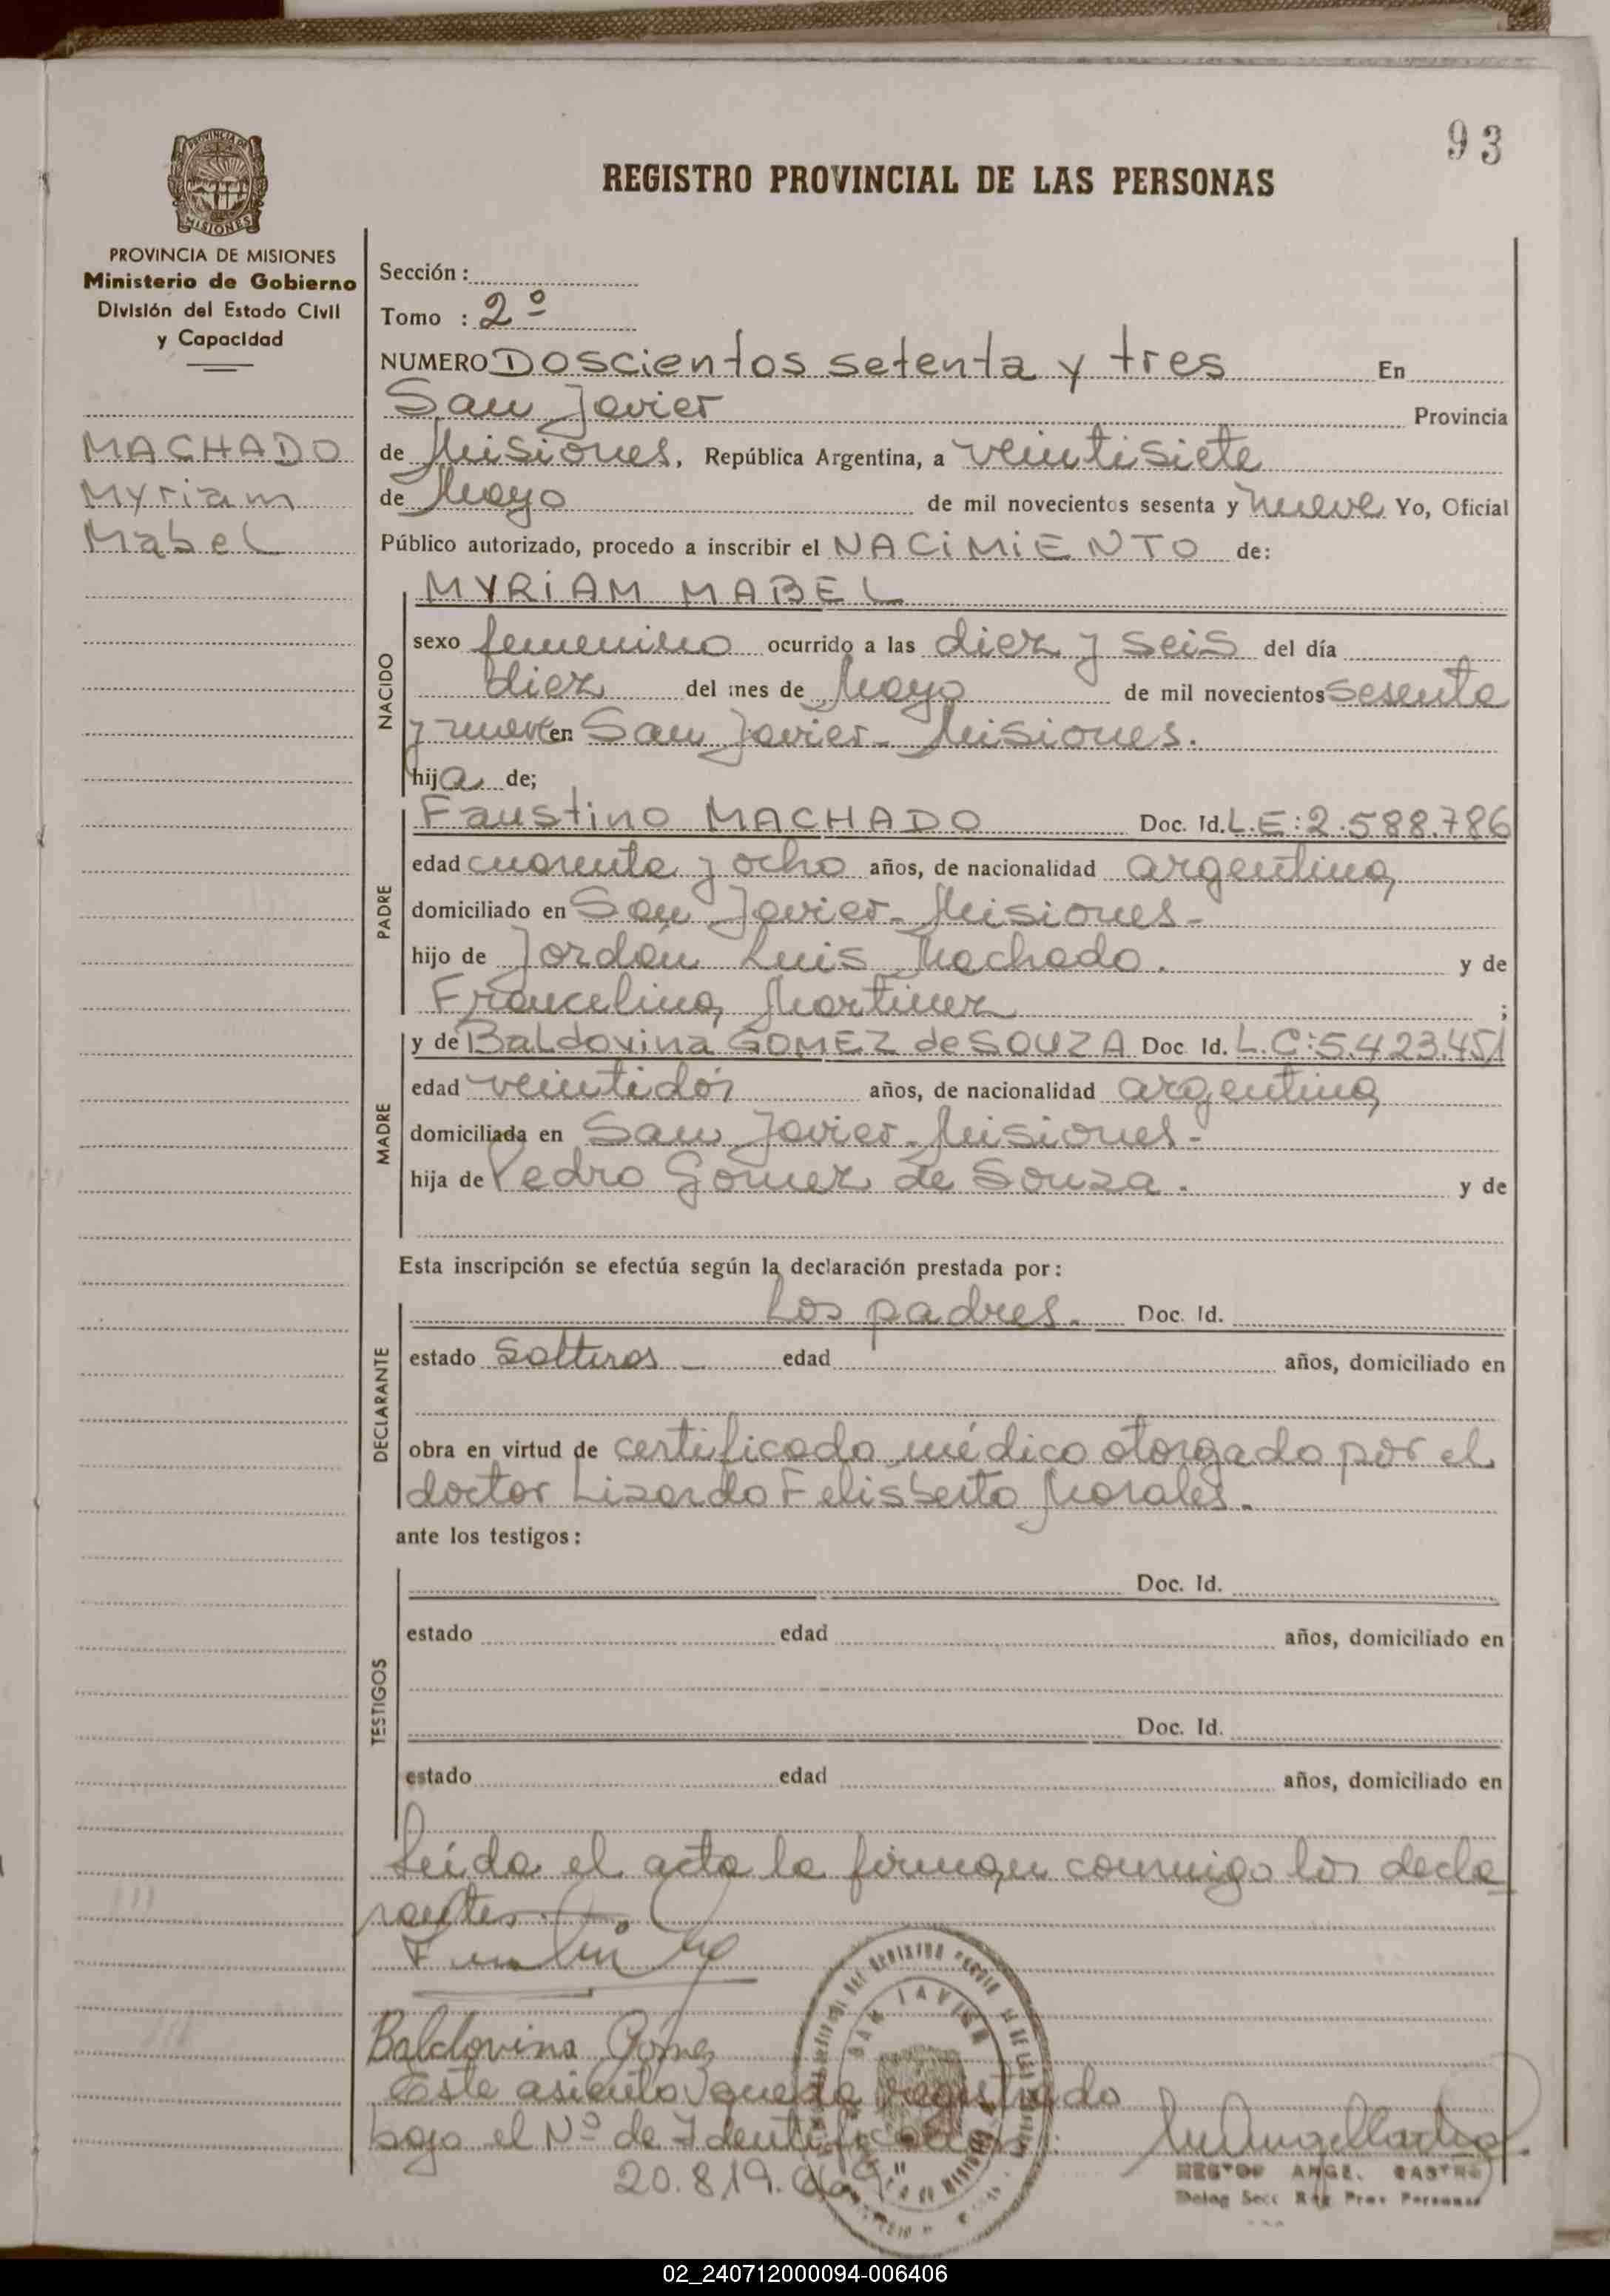 93
PROVINCIA DE
MISIONES
REGISTRO PROVINCIAL DE LAS PERSONAS
PROVINCIA DE MISIONES
Ministerio de Gobierno
División del Estado Civil
y Capacidad
MACHADO
Myriam
Mabel
Sección :
Tomo : 2º
NUMERO Doscientos setenta y tres En
San Javier Provincia
de Misiones, República Argentina, a veintisiete
de Mayo de mil novecientos sesenta y nueve Yo, Oficial
Público autorizado, procedo a inscribir el NACIMIENTO de:
MYRIAM MABEL
NACIDO
sexo femenino ocurrido a las diez y seis del día
diez del mes de Mayo de mil novecientos sesenta
y nueve en San Javier - Misiones.
hija de;
Faustino MACHADO Doc. Id. L.E:2.588.786
PADRE
edad cuarenta y ocho años, de nacionalidad argentina
domiciliado en San Javier - Misiones -
hijo de Jordán Luis Machado. y de
Francelina Martinez ;
y de Baldovina GOMEZ de SOUZA Doc. Id. L.C:5.423.451
MADRE
edad veintidós años, de nacionalidad argentina
domiciliada en San Javier - Misiones -
hija de Pedro Gomez de Souza. y de
Esta inscripción se efectúa según la declaración prestada por:
DECLARANTE
Los padres. Doc. Id.
estado Solteros - edad años, domiciliado en
obra en virtud de certificado médico otorgado por el
doctor Lizardo Felisberto Morales.
ante los testigos:
TESTIGOS
Doc. Id.
estado edad años, domiciliado en
Doc. Id.
estado edad años, domiciliado en
Leída el acta la firman conmigo los decla
rantes.
Baldovina Gómez
Este asiento queda registrado
bajo el Nº de Identificación:
20.819.069
SAN JAVIER
HESTOR ANGEL CASTRO
Deleg Secc Reg Prov Personas
02_240712000094-006406